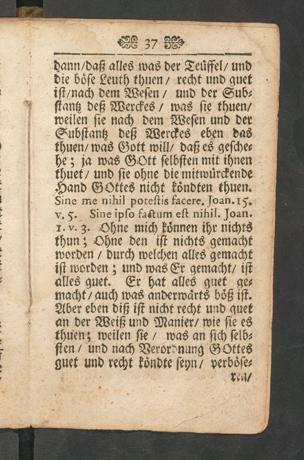 37
dann/daß alles was der Teüffel/ und
die böse Leuth thuen/ recht und guet
ist/nach dem Wesen/ und der Sub-
stantz deß Werckes/ was sie thuen/
weilen sie nach dem Wesen und der
Substantz deß Werckes eben das
thuen/ was Gott will/ daß es gesche-
he; ja was GOtt selbsten mit ihnen
thuet/ und sie ohne die mitwürckende
Hand GOttes nicht köndten thuen.
Sine me nihil potestis facere. Joan. 15.
v. 5. Sine ipso factum est nihil. Joan.
1. v. 3. Ohne mich können ihr nichts
thun; Ohne den ist nichts gemacht
worden/ durch welchen alles gemacht
ist worden; und was Er gemacht/ ist
alles guet. Er hat alles guet ge-
macht/ auch was anderwärts böß ist.
Aber eben diß ist nicht recht und guet
an der Weiß und Manier/ wie sie es
thuen; weilen sie/ was an sich selb-
sten/ und nach Verordnung GOttes
guet und recht köndte seyn/ verböse-
ren/